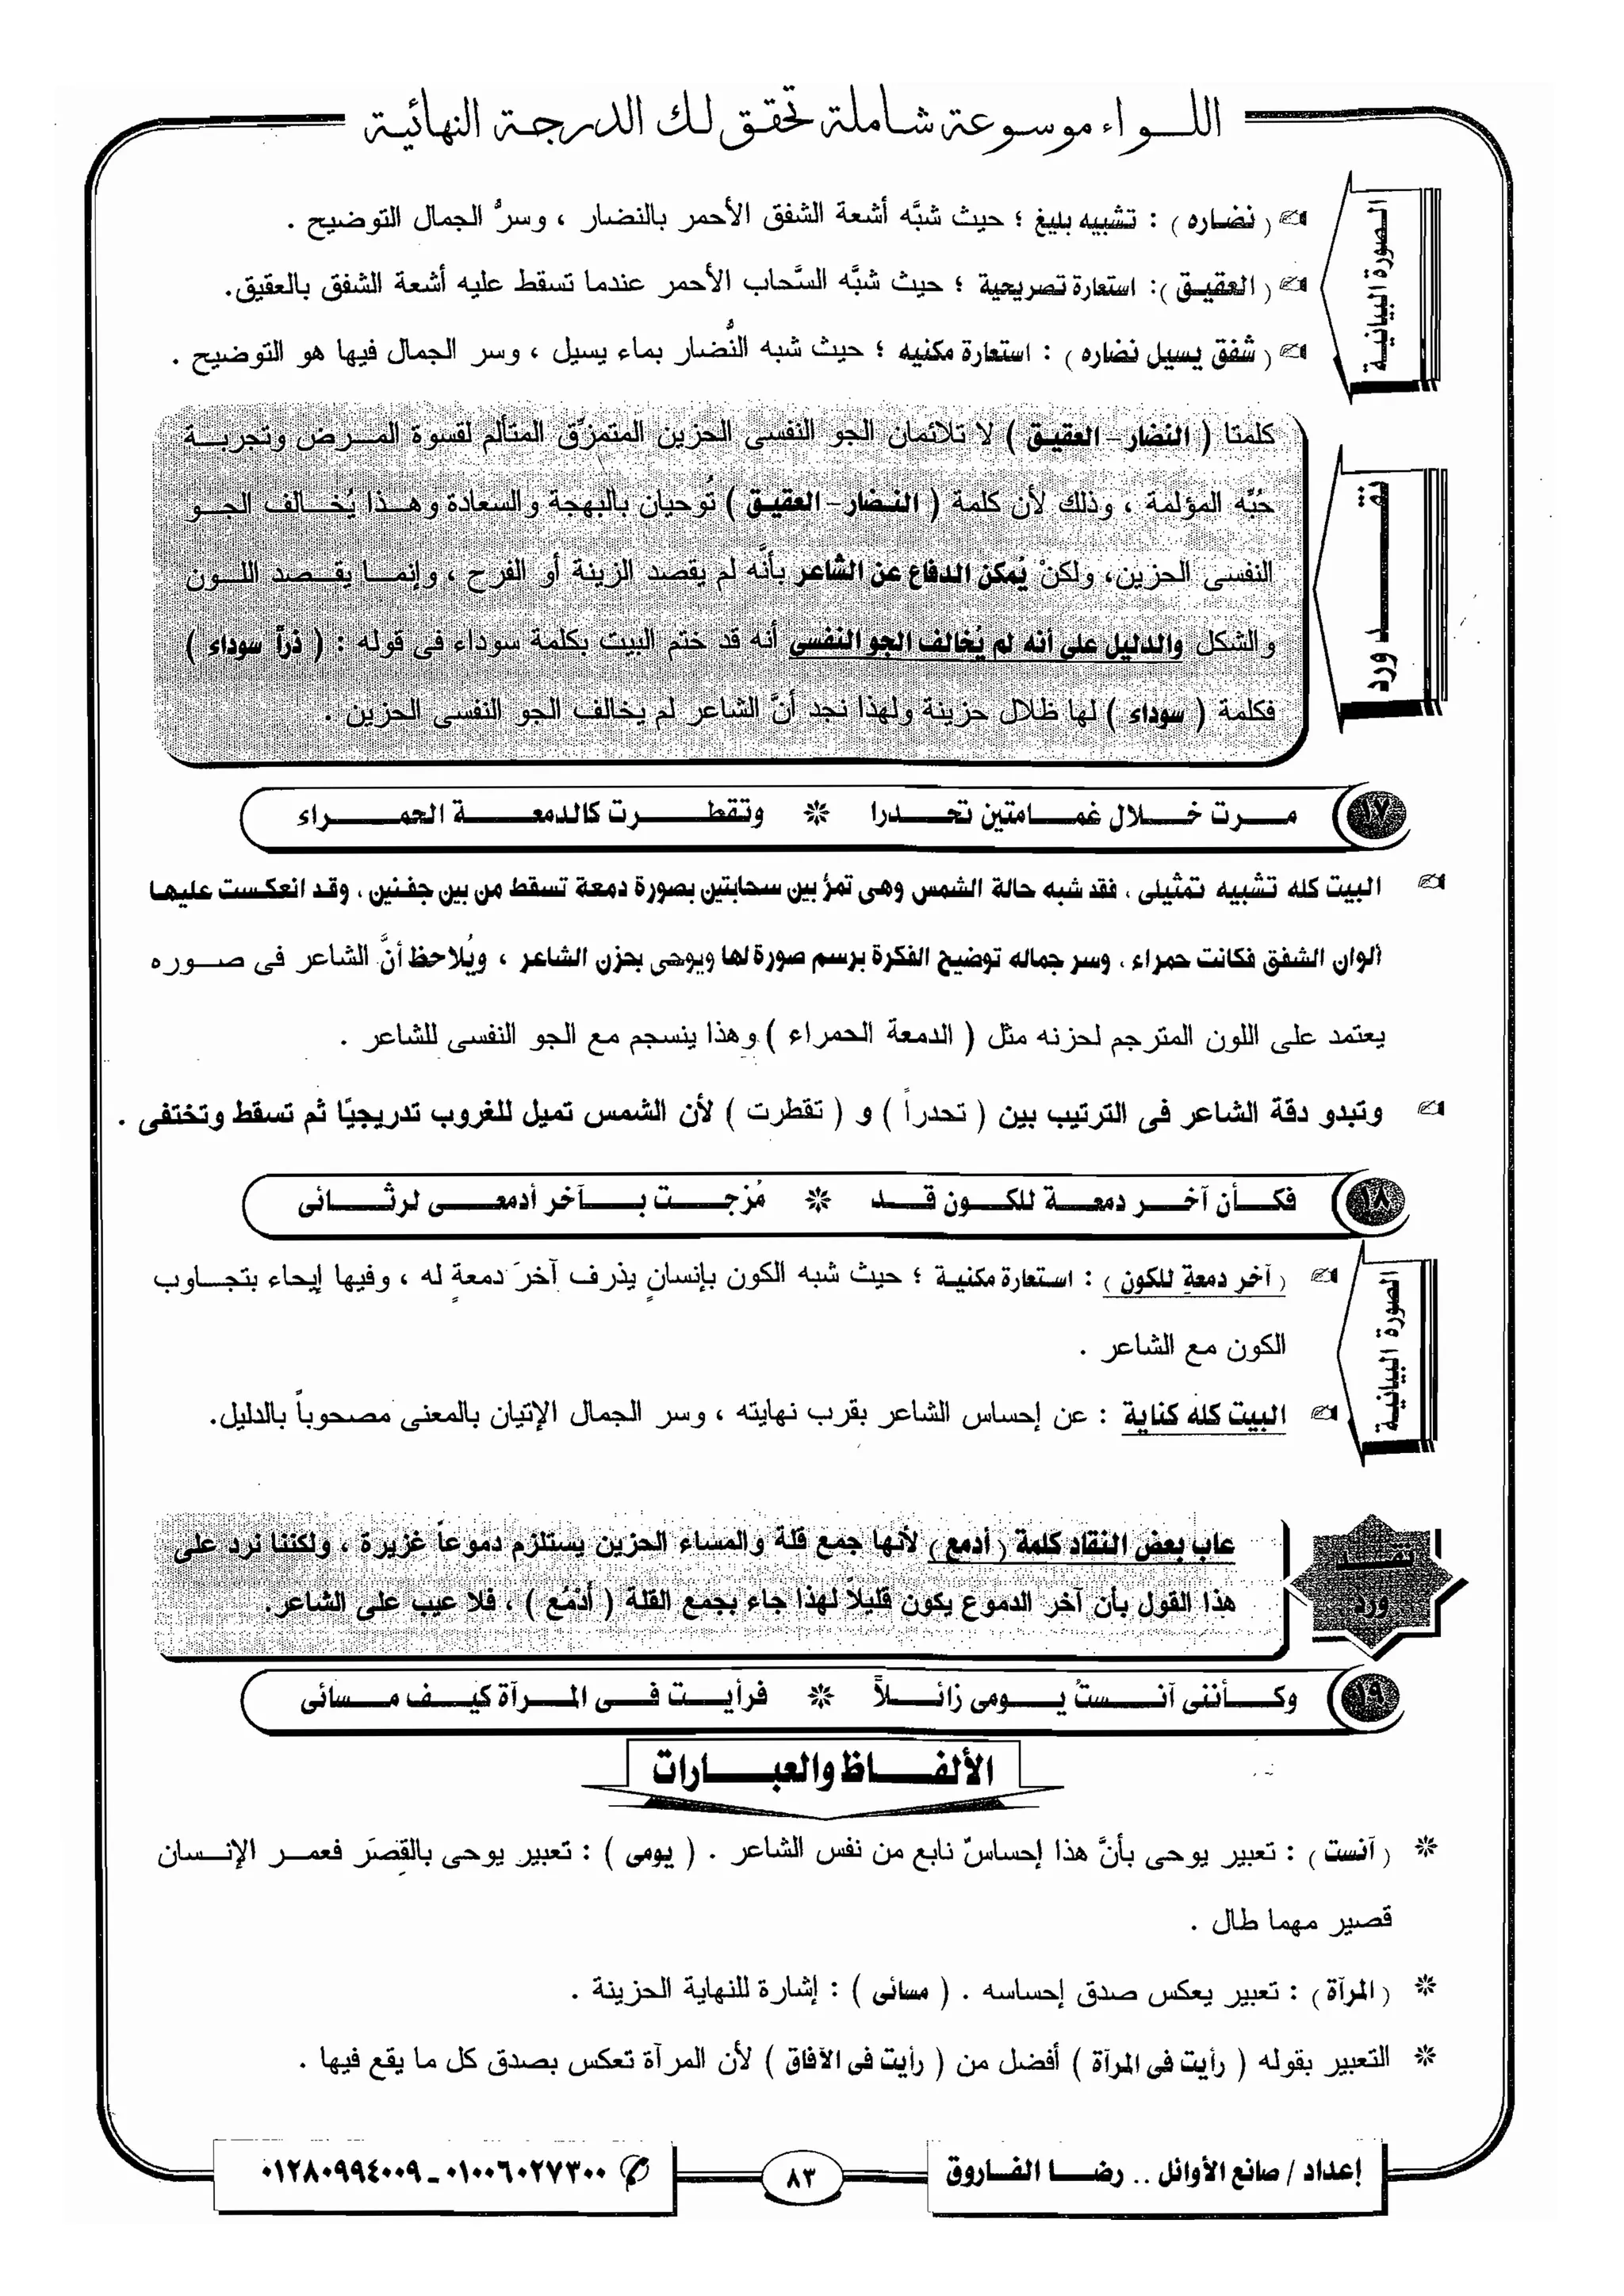 اللواء موسوعة شاملة تحقق لك الدرجة النهائية
الصورة البيانية
( نضاره ) : تشبيه بليغ ؛ حيث شبَّه أشعة الشفق الأحمر بالنضار ، وسرُّ الجمال التوضيح .
( العقيق ): استعارة تصريحية ؛ حيث شبَّه السَّحاب الأحمر عندما تسقط عليه أشعة الشفق بالعقيق.
( شفق يسيل نضاره ) : استعارة مكنيه ؛ حيث شبه النُّضار بماء يسيل ، وسر الجمال فيها هو التوضيح .
نقد ورد
كلمتا ( النضار- العقيق ) لا تلائمان الجو النفسى الحزين المتمزِّق المتألم لقسوة المرض وتجربة
حُبِّه المؤلمة ، وذلك لأن كلمة ( النضار- العقيق ) تُوحيان بالبهجة والسعادة وهذا يُخالف الجو
النفسى الحزين، ولكنْ يُمكن الدفاع عن الشاعر بأنَّه لم يقصد الزينة أو الفرح ، وإنما يقصد اللون
والشكل والدليل على أنه لم يُخالف الجو النفسي أنه قد ختم البيت بكلمة سوداء فى قوله : ( ذراً سوداء )
فكلمة ( سوداء ) لها ظلال حزينة ولهذا نجد أنَّ الشاعر لم يخالف الجو النفسى الحزين .
١٧ مرت خلال غمامتين تحدرا * وتقطرت كالدمعة الحمراء
البيت كله تشبيه تمثيلى ، فقد شبه حالة الشمس وهى تمرُّ بين سحابتين بصورة دمعة تسقط من بين جفنين ، وقد انعكست عليها
ألوان الشفق فكانت حمراء ، وسر جماله توضيح الفكرة برسم صورة لها ويوحى بحزن الشاعر ، ويُلاحظ أنَّ الشاعر فى صوره
يعتمد على اللون المترجم لحزنه مثل ( الدمعة الحمراء ) وهذا ينسجم مع الجو النفسى للشاعر .
وتبدو دقة الشاعر فى الترتيب بين ( تحدراً ) و ( تقطرت ) لأن الشمس تميل للغروب تدريجيًا ثم تسقط وتختفى .
١٨ فكأن آخر دمعة للكون قد * مُزجت بآخر أدمعى لرثائى
الصورة البيانية
( آخر دمعة للكون ) : استعارة مكنية ؛ حيث شبه الكون بإنسانٍ يذرف آخرَ دمعةٍ له ، وفيها إيحاء بتجاوب
الكون مع الشاعر .
البيت كله كناية : عن إحساس الشاعر بقرب نهايته ، وسر الجمال الإتيان بالمعنى مصحوباً بالدليل.
نقد ورد
عاب بعض النقاد كلمة ( أدمع ) لأنها جمع قلة والمساء الحزين يستلزم دموعاً غزيرة ، ولكننا نرد على
هذا القول بأن آخر الدموع يكون قليلاً لهذا جاء بجمع القلة ( أدْمُع ) ، فلا عيب على الشاعر.
١٩ وكأننى آنستُ يومى زائلاً * فرأيت فى المرآة كيف مسائى
الألفاظ والعبارات
* ( آنست ) : تعبير يوحى بأنَّ هذا إحساسٌ نابع من نفس الشاعر . ( يومى ) : تعبير يوحى بالقِصَر فعمر الإنسان
قصير مهما طال .
* ( المرآة ) : تعبير يعكس صدق إحساسه . ( مسائى ) : إشارة للنهاية الحزينة .
* التعبير بقوله ( رأيت فى المرآة ) أفضل من ( رأيت فى الآفاق ) لأن المرآة تعكس بصدق كل ما يقع فيها .
إعداد / صانع الأوائل .. رضا الفاروق
٨٣
٠١٠٠٦٠٢٧٣٠٠ - ٠١٢٨٠٩٩٤٠٠٩